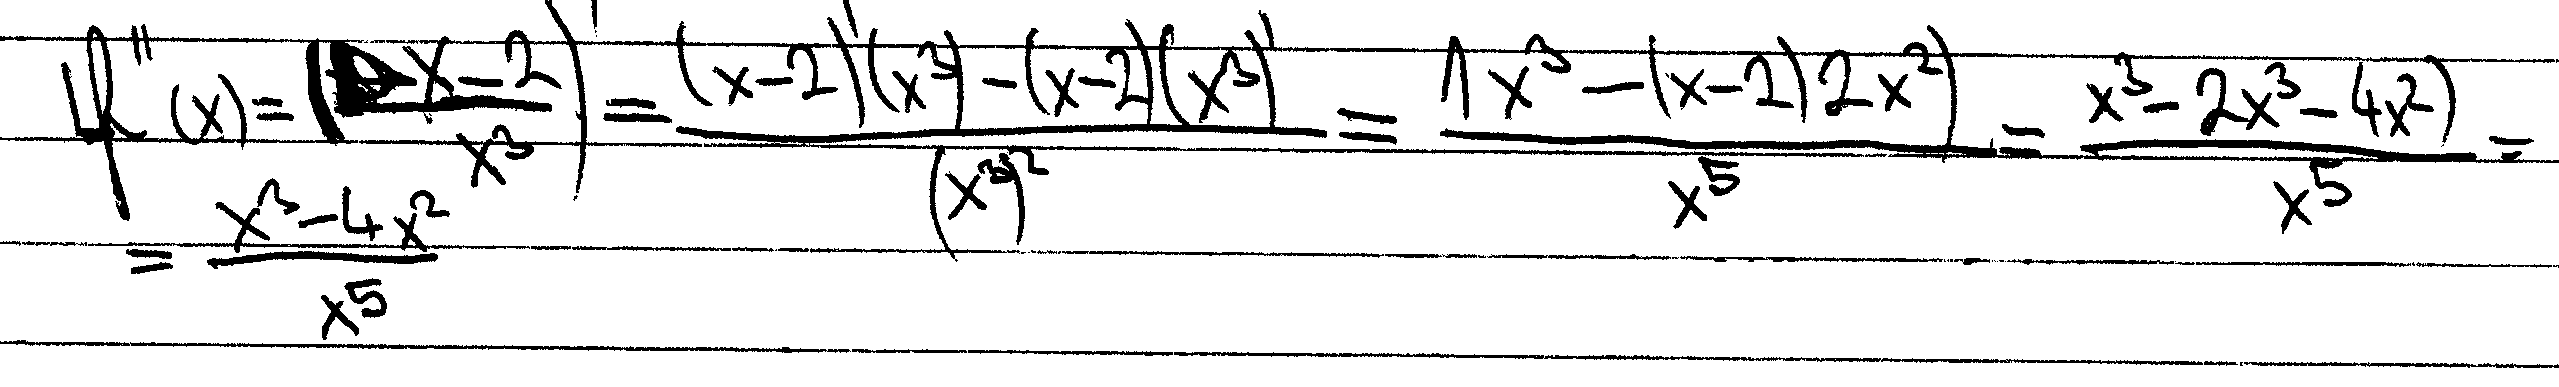 f''(x) = (x-2/x³)' = (x-2)'(x³)-(x-2)(x³)'/(x³)² = 1x³-(x-2)2x²)/x⁵ = x³-2x³-4x²)/x⁵ =
= x³-4x²/x⁵